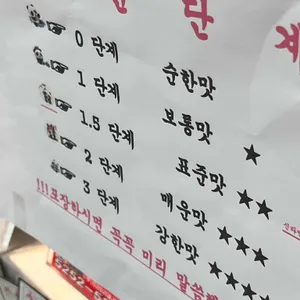 단 계
0 단계 순한맛
1 단계 보통맛 ★
1.5 단계 표준맛 ★★
2 단계 매운맛 ★★★
3 단계 강한맛 ★★★
!!!포장하시면 꼭꼭 미리 말씀